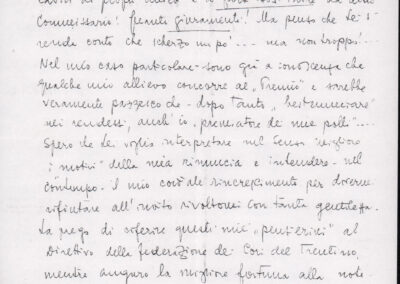 Commissario! freante giuramenti! Ma penso che Lei si
renda conto che scherzo un po'.... ma non troppo!...
Nel mio caso particolare sono già a conoscenza che
qualche mio allievo concorre al "Premio" e sarebbe
veramente pazzesco che - dopo tanto
mi rendessi, anch'io, "premiatore dei miei polli"....
Spero che Lei voglia interpretare nel senso migliore
i "motivi" della mia rinuncia e intendere - nel
contempo - il mio cordiale rincrescimento per doverne
rifiutare all'invito rivoltomi con tanta gentilezza.
La prego di riferire questi miei "pensierini" al
Direttivo della federazione dei Cori del Trentino,
mentre auguro la migliore fortuna alla note-